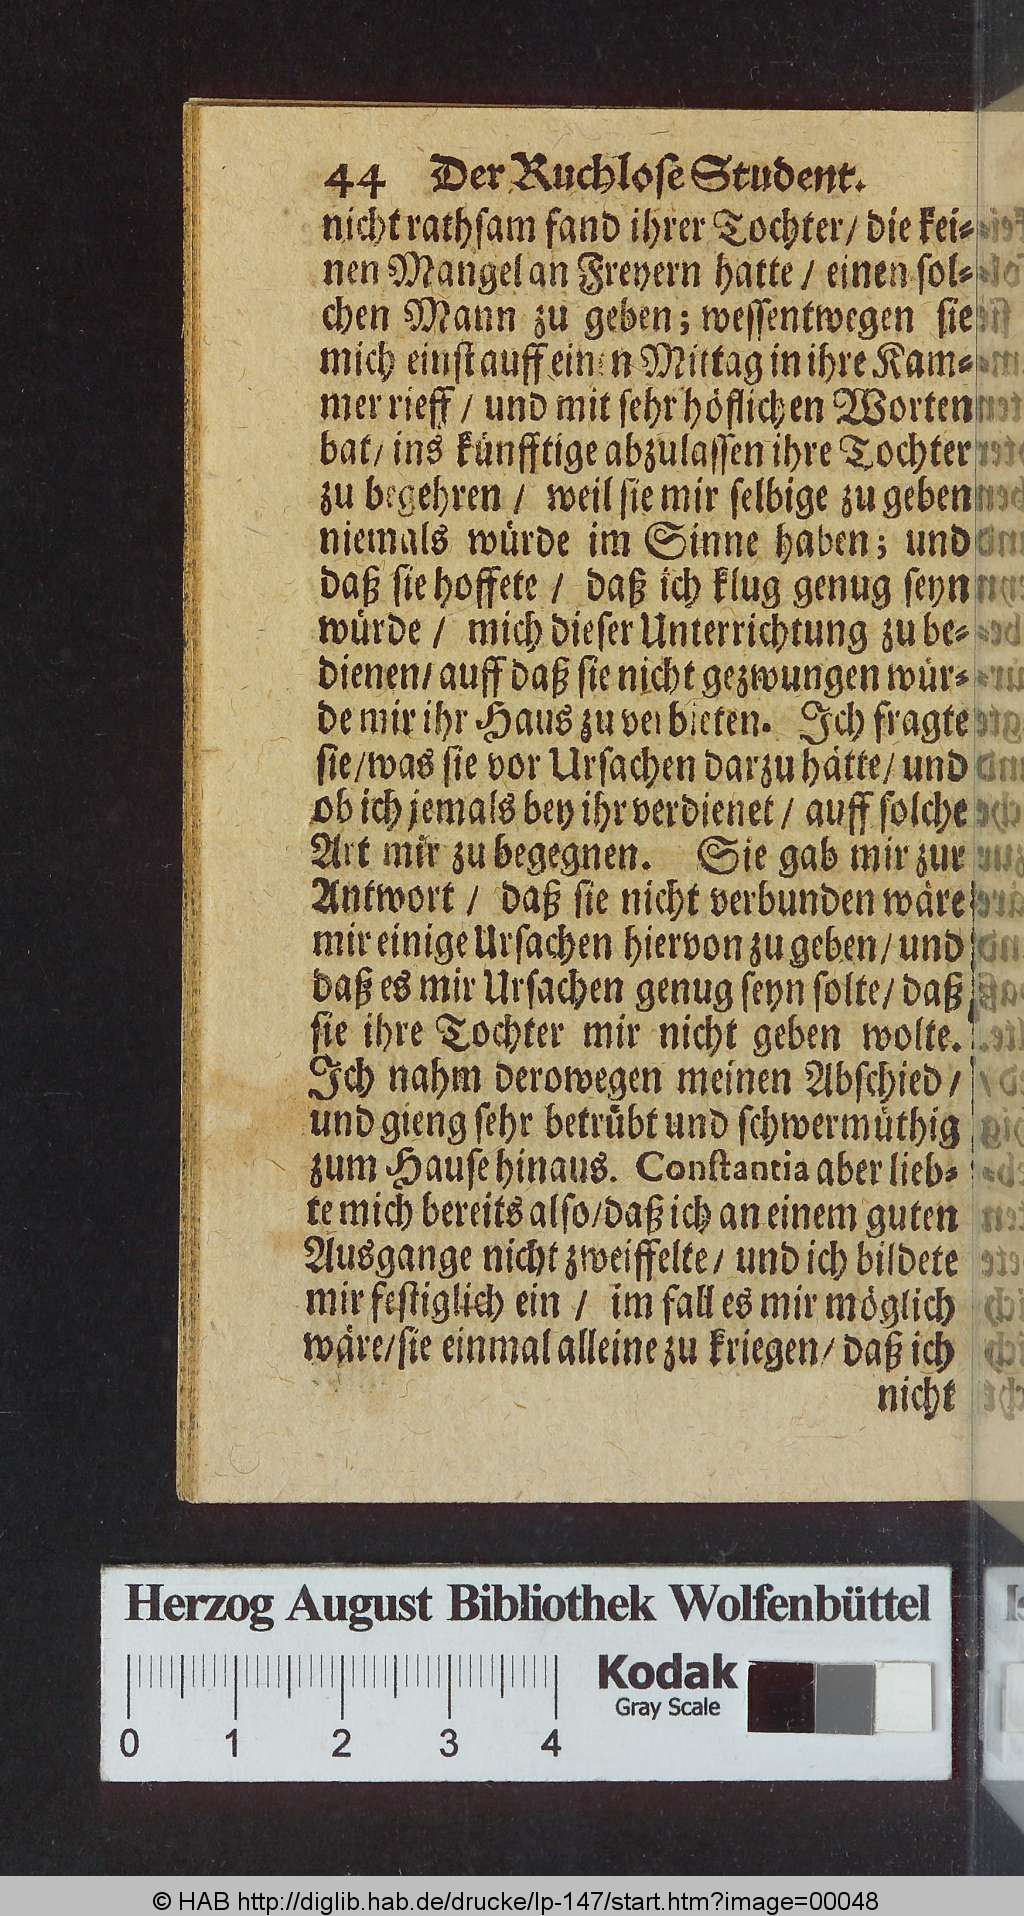 44 Der Ruchlose Student.
nicht rathsam fand ihrer Tochter/ die kei-
nen Mangel an Freyern hatte / einen sol-
chen Mann zu geben; wessentwegen sie
mich einst auff einen Mittag in ihre Kam-
mer rieff / und mit sehr höflichen Worten
bat/ ins künfftige abzulassen ihre Tochter
zu begehren / weil sie mir selbige zu geben
niemals würde im Sinne haben; und
daß sie hoffete / daß ich klug genug seyn
würde / mich dieser Unterrichtung zu be-
dienen/ auff daß sie nicht gezwungen wür-
de mir ihr Haus zu verbieten. Ich fragte
sie/was sie vor Ursachen darzu hätte/ und
ob ich jemals bey ihr verdienet / auff solche
Art mir zu begegnen. Sie gab mir zur
Antwort / daß sie nicht verbunden wäre
mir einige Ursachen hiervon zu geben/ und
daß es mir Ursachen genug seyn solte/ daß
sie ihre Tochter mir nicht geben wolte.
Ich nahm derowegen meinen Abschied /
und gieng sehr betrübt und schwermüthig
zum Hause hinaus. Constantia aber lieb-
te mich bereits also/daß ich an einem guten
Ausgange nicht zweiffelte/ und ich bildete
mir festiglich ein / im fall es mir möglich
wäre/sie einmal alleine zu kriegen/ daß ich
nicht
Herzog August Bibliothek Wolfenbüttel
Kodak
Gray Scale
0 1 2 3 4
© HAB http://diglib.hab.de/drucke/lp-147/start.htm?image=00048